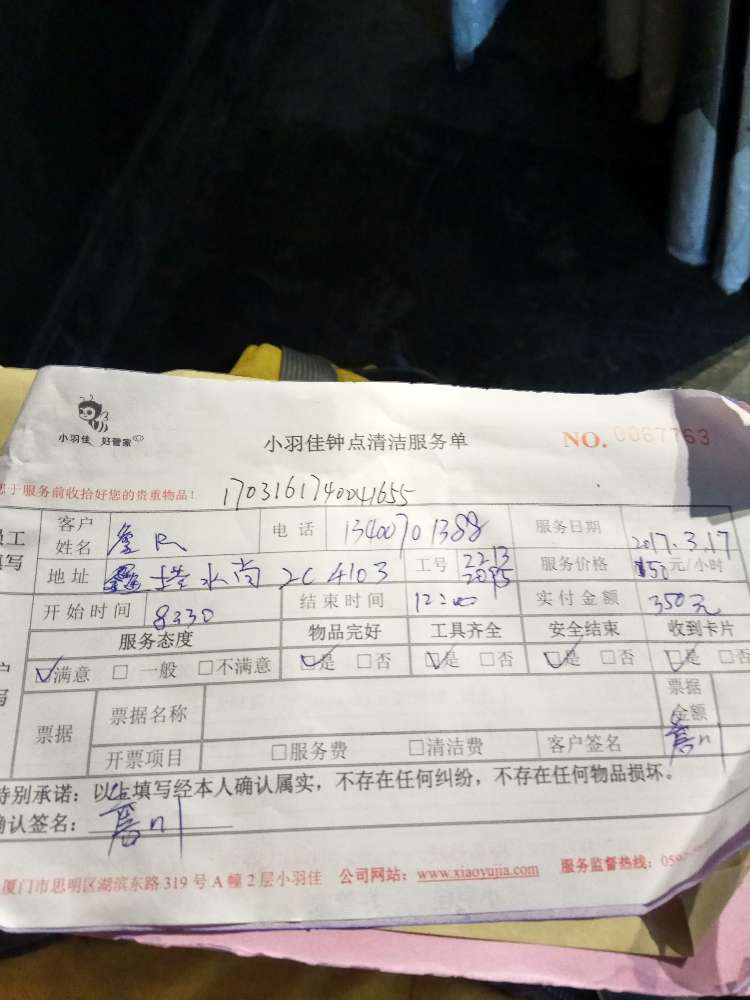 小羽佳 好管家
小羽佳钟点清洁服务单
NO. 0067763
于服务前收拾好您的贵重物品！
1703161740041655
客户姓名
电话 13400701388
服务日期 2017.3.17
地址 水尚 2C 4103
工号 2213 2095
服务价格 50元/小时
开始时间 8:30
结束时间 12:00
实付金额 350元
服务态度 物品完好 工具齐全 安全结束 收到卡片
☑满意 □一般 □不满意 ☑是 □否 ☑是 □否 ☑是 □否 ☑是 □否
票据 票据名称 票据金额
开票项目 □服务费 □清洁费 客户签名
特别承诺：以上填写经本人确认属实，不存在任何纠纷，不存在任何物品损坏。
确认签名：
厦门市思明区湖滨东路 319 号 A 幢 2 层小羽佳 公司网站：www.xiaoyujia.com 服务监督热线：059